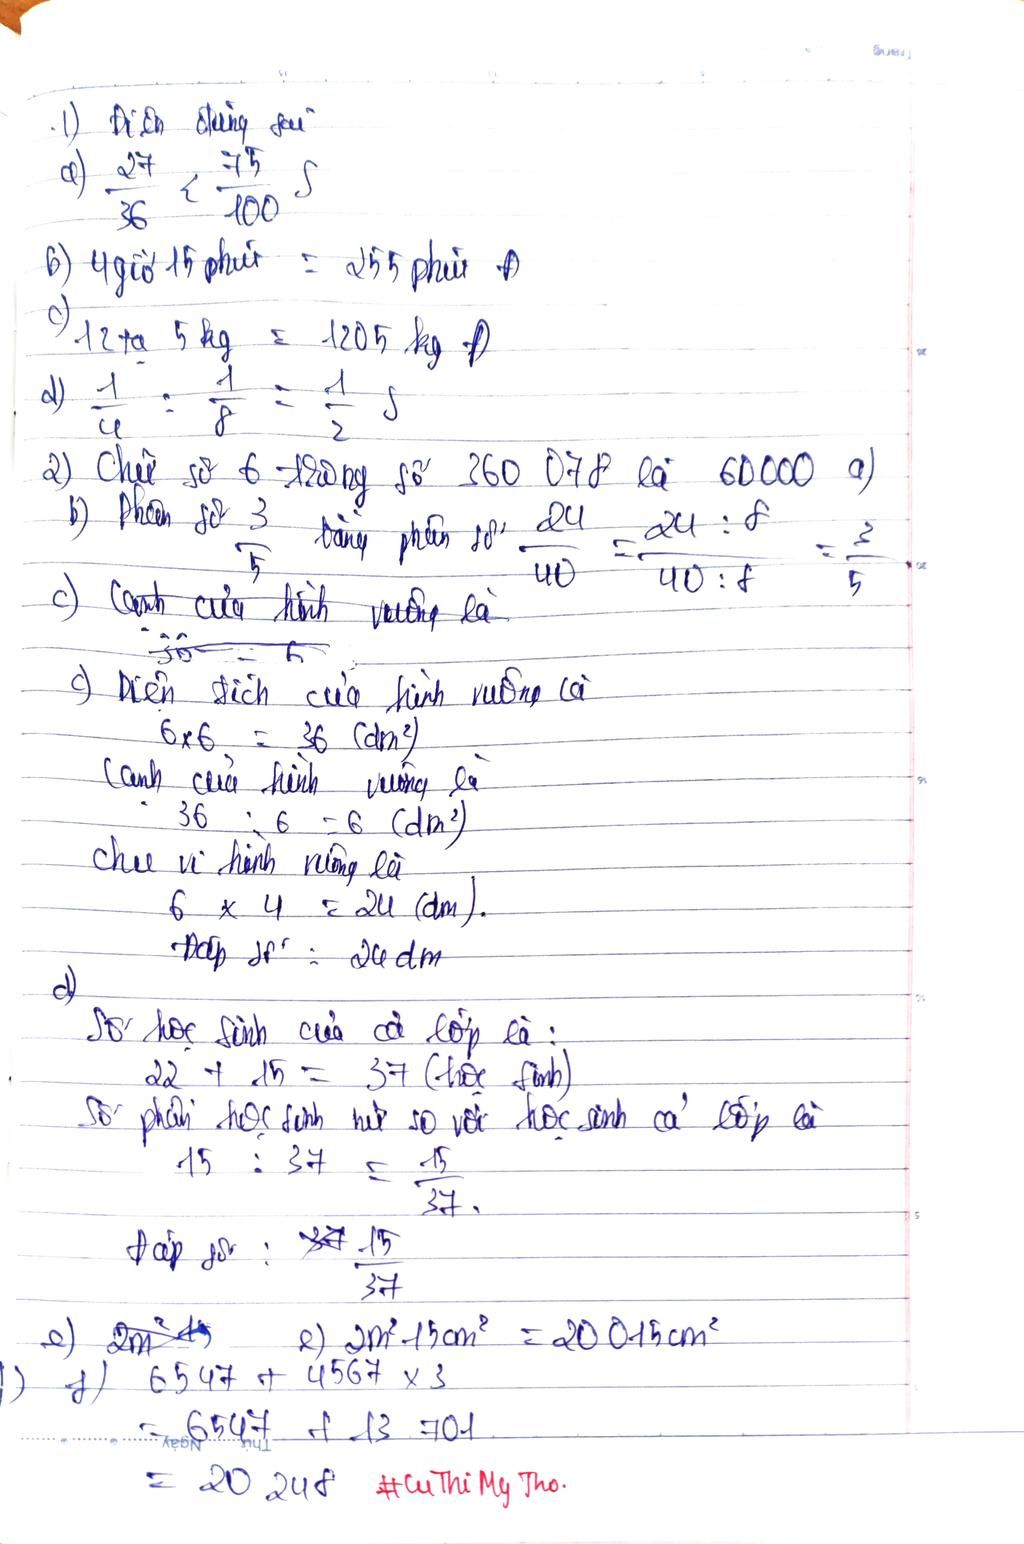 1) Điền đúng sai
a) 27/36 < 75/100 S
b) 4 giờ 15 phút = 255 phút Đ
c) 12 tạ 5 kg = 1205 kg Đ
d) 1/4 : 1/8 = 1/2 S
2) Chữ số 6 trong số 360 078 là 60000 a)
b) Phân số 3/5 bằng phân số 24/40 = 24 : 8 / 40 : 8 = 3/5
c) Cạnh của hình vuông là
36 = 6
c) Diện tích của hình vuông là
6x6 = 36 (dm²)
Cạnh của hình vuông là
36 : 6 = 6 (dm²)
Chu vi hình vuông là
6 x 4 = 24 (dm).
Đáp số : 24 dm
d)
Số học sinh của cả lớp là :
22 + 15 = 37 (học sinh)
Số phần học sinh nữ so với học sinh cả lớp là
15 : 37 = 15/37.
Đáp số : 37 15/37
e) 2m² 15 e) 2m² 15cm² = 20 015cm²
f) 6547 + 4567 x 3
= 6547 + 13 701
Thứ Ngày
= 20 248 #CuThiMyTho.